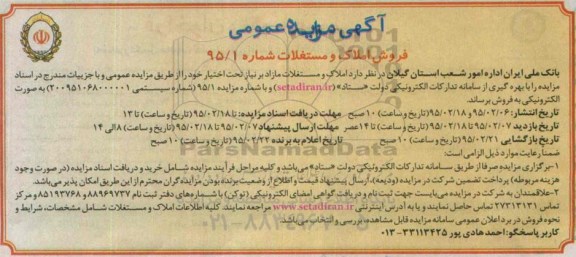 آگهی مزایده عمومی
فروش املاک و مستغلات شماره ۹۵/۱
بانک ملی ایران اداره امور شعب استان گیلان در نظر دارد املاک و مستغلات مازاد بر نیاز تحت اختیار خود را از طریق مزایده عمومی و با جزییات مندرج در اسناد
مزایده را با بهره گیری از سامانه تدارکات الکترونیکی دولت «ستاد» (setadiran.ir) و با شماره مزایده ۹۵/۱ (شماره سیستمی ۲۰۰۹۵۱۰۶۸۰۰۰۰۰۱) به صورت
الکترونیکی به فروش برساند.
تاریخ انتشار: ۹۵/۰۲/۰۶ و ۹۵/۰۲/۱۸ (تاریخ وساعت) ۱۰ صبح مهلت دریافت اسناد مزایده: تا ۹۵/۰۲/۱۸ (تاریخ و ساعت) تا ۱۳
تاریخ بازدید ۹۵/۰۲/۰۷ تا ۹۵/۰۲/۱۸ (تاریخ وساعت) تا ۱۴ عصر مهلت ارسال پیشنهاد ۹۵/۰۲/۰۷ تا ۹۵/۰۲/۱۸ (تاریخ و ساعت) ۸ الی ۱۴
تاریخ بازگشایی ۹۵/۰۲/۲۱ (تاریخ وساعت) ۱۰ صبح تاریخ اعلام به برنده ۹۵/۰۲/۲۲ (تاریخ و ساعت) ۱۰ صبح
ضمنا رعایت موارد ذیل الزامی است:
۱- برگزاری مزایده صرفا از طریق سامانه تدارکات الکترونیکی دولت «ستاد» می‌باشد و کلیه مراحل فرآیند مزایده شامل خرید و دریافت اسناد مزایده (در صورت وجود
هزینه مربوطه) پرداخت تضمین شرکت در مزایده (ودیعه)، ارسال پیشنهاد قیمت و اطلاع از وضعیت برنده بودن مزایده گران محترم از این طریق امکان پذیر می‌باشد.
۲- علاقمندان به شرکت در مزایده می‌بایست جهت ثبت نام و دریافت گواهی امضای الکترونیکی (توکن) با شماره‌های دفتر ثبت نام ۸۸۹۶۹۷۳۷ و ۸۵۱۹۳۷۶۸ و مرکز
تماس ۲۷۳۱۳۱۳۱ تماس حاصل نمایند و یا به آدرس اینترنتی www.setadiran.ir مراجعه نمایند. کلیه اطلاعات املاک و مستغلات شامل مشخصات، شرایط و
نحوه فروش در برد اعلان عمومی سامانه مزایده قابل مشاهده، بررسی و انتخاب می‌باشد.
کاربر پاسخگو: احمد هادی پور ۳۳۱۱۳۴۲۵-۰۱۳
ParsNamadData